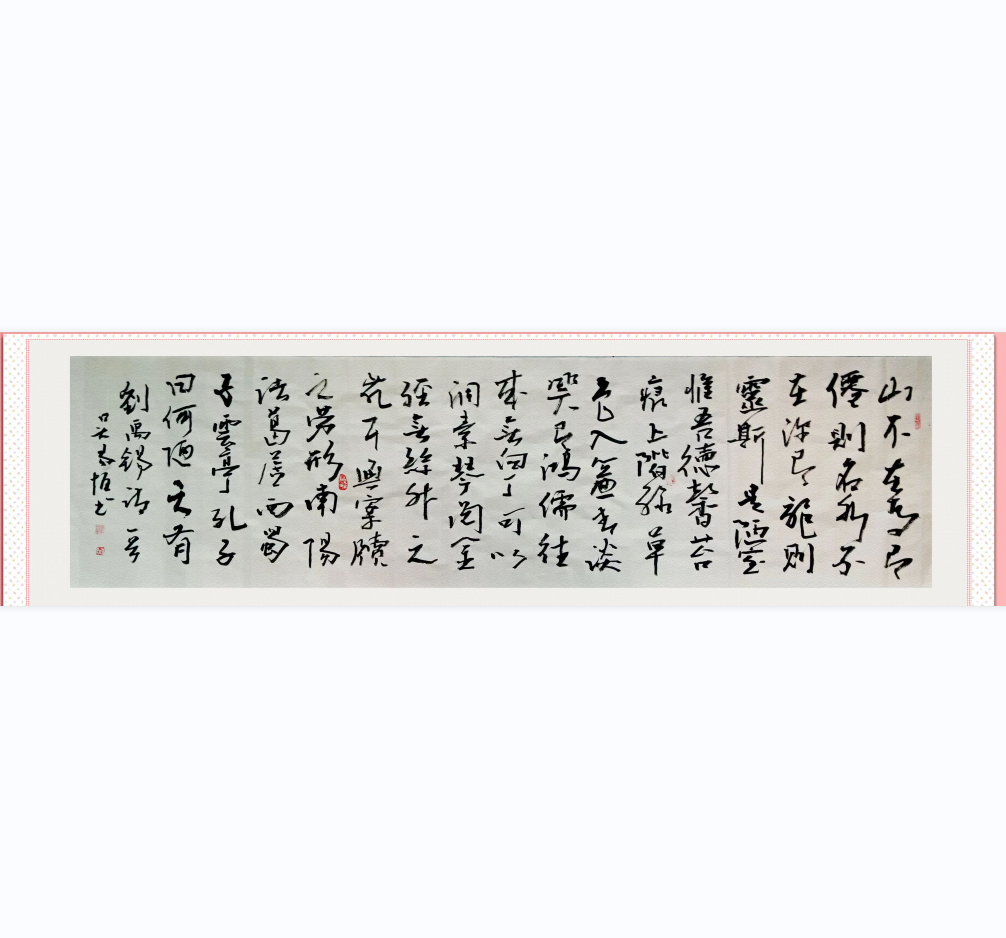 山不在高有
僊則名水不
在深有龍則
靈斯是陋室
惟吾德馨苔
痕上階緑草
色入簾青談
笑有鴻儒往
来無白丁可以
調素琴閲金
經無絲竹之
乱耳無案牘
之勞形南陽
諸葛廬西蜀
子雲亭孔子
曰何陋之有
劉禹錫詩一首
吴恒书